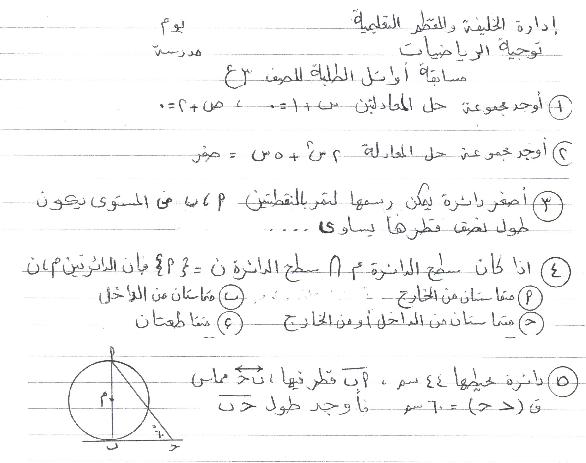 إدارة الخليفة والمقطم التعليمية يوم
توجية الرياضيات مدرسة
مسابقة أوائل الطلبة للصف ٣ ع
١ أوجد مجموعة حل المعادلتين س + ١ = ٠ ، ص + ٢ = ٠
٢ أوجد مجموعة حل المعادلة ٢ س٢ + ٥ س = صفر
٣ أصغر دائرة يمكن رسمها لتمر بالنقطتين م ، ب فى المستوى يكون
طول نصف قطرها يساوى ....
٤ اذا كان سطح الدائرة م ∩ سطح الدائرة ن = {م} فإن الدائرتين م ، ن
م متماستان من الخارج ب متماستان من الداخل
ح متماستان من الداخل أو من الخارج ء متقاطعتان
٥ دائرة محيطها ٤٤ سم ، م ب قطر فيها ، ب ح مماس
ق (< ح) = ٦٠ سم فأوجد طول ح ب
م
م
٦٠
ب ح